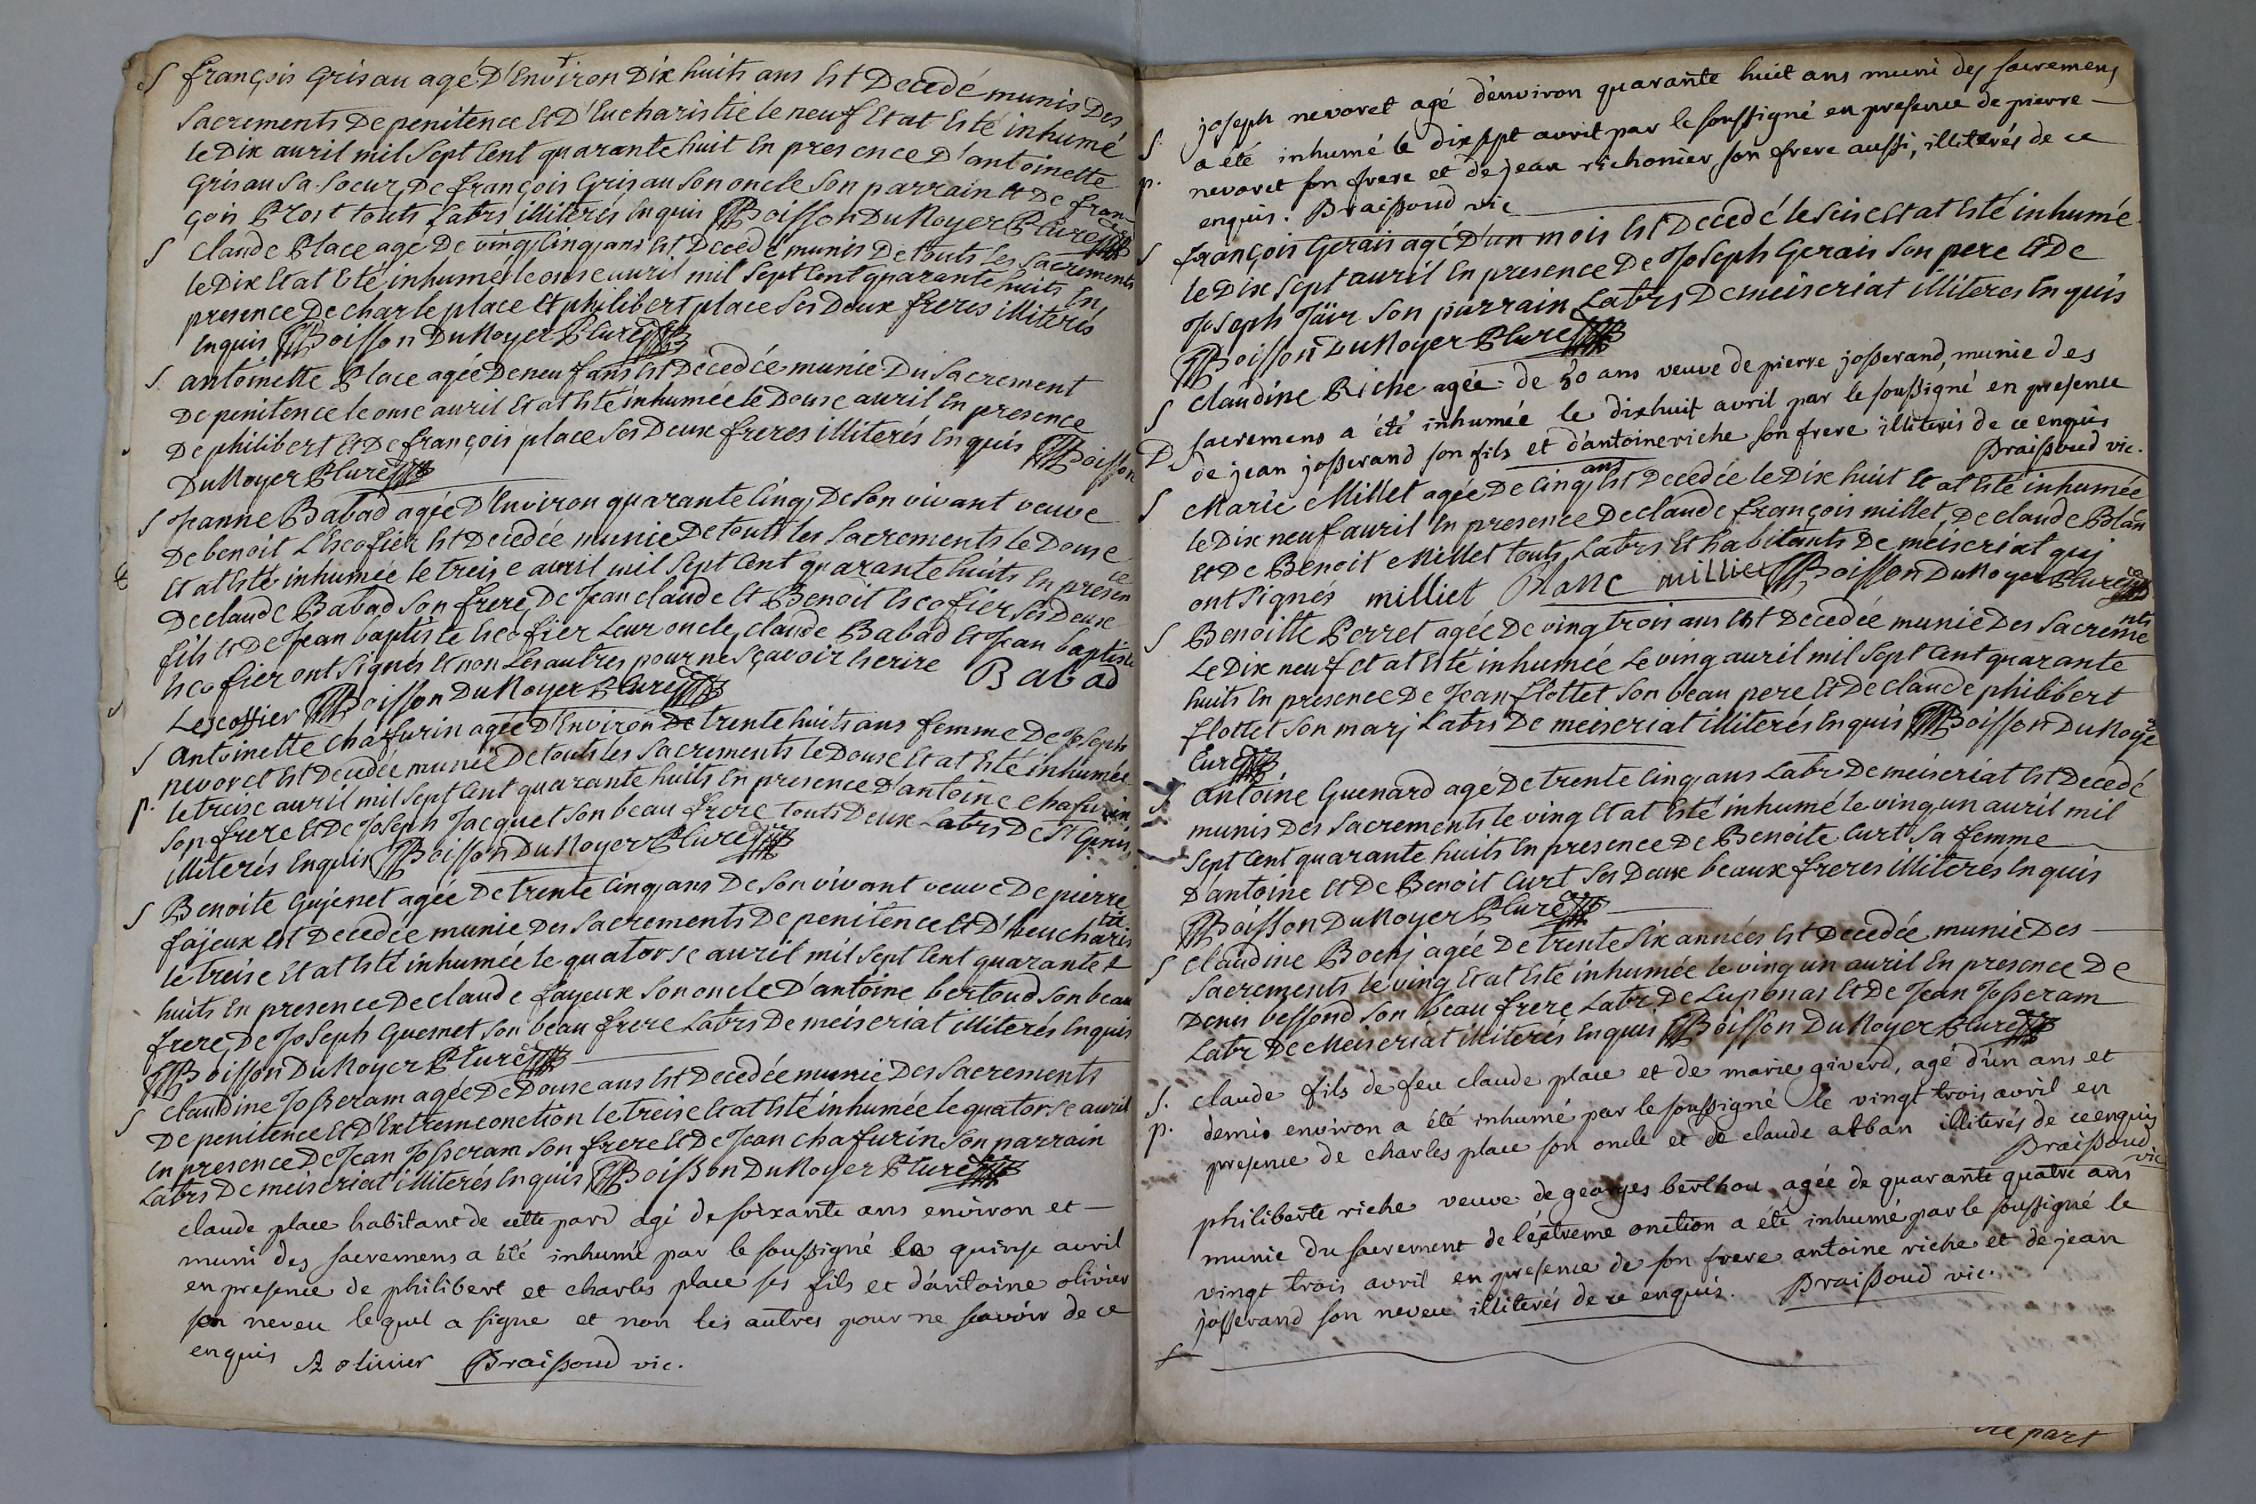 S françois Grisau agé D'Environ Dix huits ans Est Decedé munis Des
Sacrements De penitence Et D'Eucharistie le neuf Et at Esté inhumé
le Dix auril mil Sept Cent quarante huit En presence D'antoinette
Grisau Sa Soeur, De françois Grisau Son oncle Son parrain Et De fran-
çois Prost touts Labrs illiterés Enquis Boisson Du Noyer Curé
S Claude Place agé De ving Cinq ans Est Decedé munis De touts Les Sacrements
le Dix Et at Esté inhumé le onse auril mil Sept Cent quarante huits En
presence De charle place Et philibert place Ses Deux freres illiterés
Enquis Boisson Du Noyer Curé
S. antoinette Place agée De neuf ans Est Decedée munie Du Sacrement
De penitence le onse auril Et at Esté inhumée le Douse auril En presence
De philibert Et De françois place Ses Deux freres illiterés Enquis Boisson
Du Noyer Curé
S Jeanne Babad agée D'Environ quarante Cinq, De Son vivant veuve
De benoit L'Escofier Est Decedée munie De touts les Sacrements le Douse
Et at Esté inhumée le treise auril mil Sept Cent quarante huits En presen ce
De claude Babad Son frere, De Jean claude Et Benoit Escofier Ses Deux
fils Et De Jean baptiste Escofier Leur oncle, claude Babad Et Jean baptiste
Escofier ont Signés Et non Les autres pour ne Sçavoir Escrire Babad
Lescoffier Boisson Du Noyer Curé
S Antoinette Chafurin agée D'Environ De trente huits ans femme De Joseph
nevoret Est Decedée munie De touts les Sacrements le Douse Et at Esté inhumée
p. le treise auril mil Sept Cent quarante huits En presence D'antoine Chafurin
Son frere Et De Joseph Jacquet Son beau frere touts Deux Labrs De St Genis
illiterés Enquis Boisson Du Noyer Curé
S Benoite Gujenet agée De trente Cinq ans De Son vivant veuve De pierre
fajeux Est Decedée munie Des Sacrements De penitence Et D'heucharis tie
le treise Et at Esté inhumée le quatorse auril mil Sept Cent quarante
huits En presence De claude fayeux Son oncle D'antoine bertoud Son beau
frere, De Joseph Guemet Son beau frere Labrs De meiseriat illiterés Enquis
Boisson Du Noyer Curé
S Claudine Josseram agée De Douse ans Est Decedée munie Des Sacrements
De penitence Et D'Extremeonction le treise Et at Esté inhumée le quatorse auril
En presence De Jean Josseram Son frere Et De Jean Chafurin Son parrain
Labrs De meiseriat illiterés Enquis Boisson Du Noyer Curé
claude place habitant de cette parr agé de soixante ans environ et -
muni des sacremens a été inhumé par le soussigné le quinse avril
en presence de philibert et charles place ses fils et d'antoine olivier
son neveu lequel a signe et non les autres pour ne scavoir de ce
enquis A olivier Braissoud vic.
joseph nevoret agé d'environ quarante huit ans muni des sacremens
S. a été inhumé le dixsept avril par le soussigné en presence de pierre -
p. nevoret son frere et de jean richonier son frere aussi, illiterés de ce
enquis. Braissoud vic
S françois Gerais agé D'un mois Est Decedé le Seise Et at Esté inhumé
le Dix Sept auril En presence De Joseph Gerais Son pere Et De
Joseph Jäir Son parrain Labrs De meiseriat illiteres Enquis
Boisson Du Noyer Curé
S claudine Riche agée de 50 ans veuve de pierre josserand, munie des
D sacremens a été inhumée le dixhuit avril par le soussigné en presence
de jean josserand son fils et d'antoine riche son frere illiterés de ce enquis
Braissoud vic.
S Marie Millet agée De Cinq ans Est Decedée le Dix huit Et at Esté inhumée
le Dix neuf auril En presence De claude françois millet, De claude Blan c
Et De Benoit Millet touts Labrs Et habitants De meiseriat qui
ont Signés milliet Blanc milliet Boisson Du Noyer Curé
S Benoitte Perret agée De ving trois ans Est Decedée munie Des Sacreme nts
Le Dix neuf Et at Esté inhumée Le ving auril mil Sept Cent quarante
huits En presence De Jean flottet Son beau pere Et De Claude philibert
flottet Son marj Labrs De meiseriat illiterés Enquis Boisson Du Noye r
Curé
S Antoine Guenard agé De trente Cinq ans Labr De meiseriat Est Decedé
munis Des Sacrements le ving Et at Esté inhumé le ving un auril mil
Sept Cent quarante huits En presence De Benoite Curt Sa femme
D'antoine Et De Benoit Curt Ses Deux beaux freres illiterés Enquis
Boisson Du Noyer Curé
S Claudine Bochj agée De trente Six années Est Decedée munie Des
Sacrements le ving Et at Esté inhumée le ving un auril En presence De
Denis bessond Son beau frere Labr De Luponas Et De Jean Josseram
Labr De Meiseriat illiterés Enquis Boisson Du Noyer Curé
S. claude fils de feu claude place et de marie giverd, agé d'un ans et
p. demis environ a été inhumé par le soussigné le vingt trois avril en
presence de charles place son oncle et de claude alban illiterés de ce enquis
Braissoud vic
philiberte riche veuve de georges berthou, agée de quarante quatre ans
munie du sacrement de l'extreme onction a été inhumé par le soussigné le
vingt trois avril en presence de son frere antoine riche et de jean
josserand son neveu illiterés de ce enquis. Braissoud vic.
part